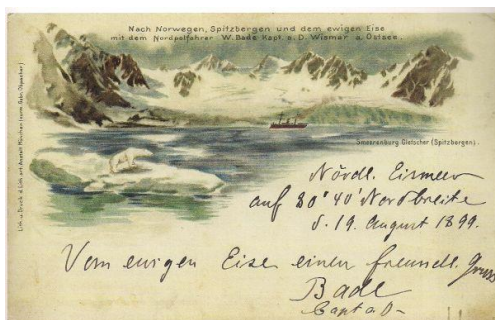 Nach Norwegen, Spitzbergen und dem ewigen Eise
mit dem Nordpolfahrer W. Bade Kapt. a. D. Wismar a. Ostsee.
Smeerenburg Gletscher (Spitzbergen).
Nördl. Eismeer
auf 80° 40' Nordbreite
d. 19. August 1899.
Vom ewigen Eise einen freundl. Gruss
Bade
Capt a. D.